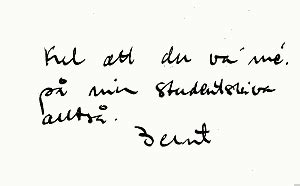 Kul att du va' mé.
på min studentskiva
alltså.
Bernt